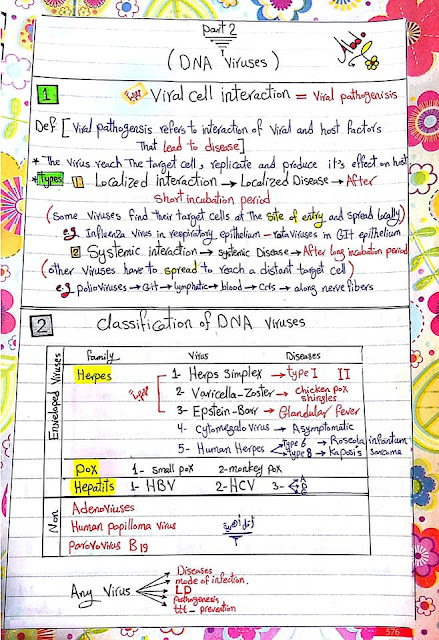 Part 2
(DNA Viruses)
1 Viral cell interaction = Viral pathogenisis
Def. [Viral pathogensis refers to interaction of Viral and host factors
That lead to disease]
* The virus reach The target cell, replicate and produce it's effect on host
* Types 1 Localized interaction → Localized Disease → After
short incubation period
(Some viruses find their target cells at The site of entry and spread locally)
e.g Influenza virus in respiratory epithelium - rotaviruses in GIT epithelium
2 Systemic interaction → systemic Disease → After long incubation period
(other viruses have to spread to reach a distant target cell)
e.g polioviruses → GIT → lymphatic → blood → CNS → along nerve fibers
2 Classification of DNA viruses
Enveloped Viruses
Family Virus Diseases
Herpes 1- Herps Simplex → type I II
2- Varicella-Zoster → chicken pox
shingles
3- Epstein-Barr → Glandular fever
4- Cytomegalo virus → Asymptomatic
5- Human Herpes type 6 → Roseola infantum
type 8 → Kaposis sarcoma
Pox 1- small pox 2- monkey pox
Hepatits 1- HBV 2- HCV 3-
Non
Adenoviuses
Human papilloma virus
Parvovirus B19
Any Virus
Diseases
mode of infection.
LD
pathogenesis
ttt - prevention
576